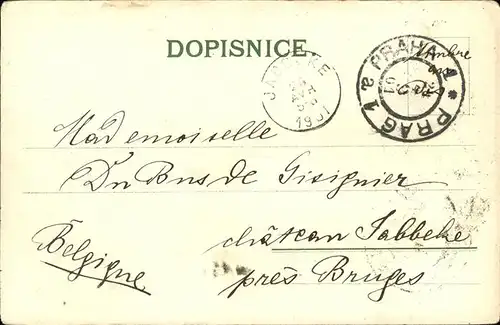 DOPISNICE
JABBEKE
1901
PRAHA 1 * PRAG 1 a
Timbre
au
côté
Mademoiselle
Du Bus de Gisignier
château Jabbeke
près Bruges
Belgique